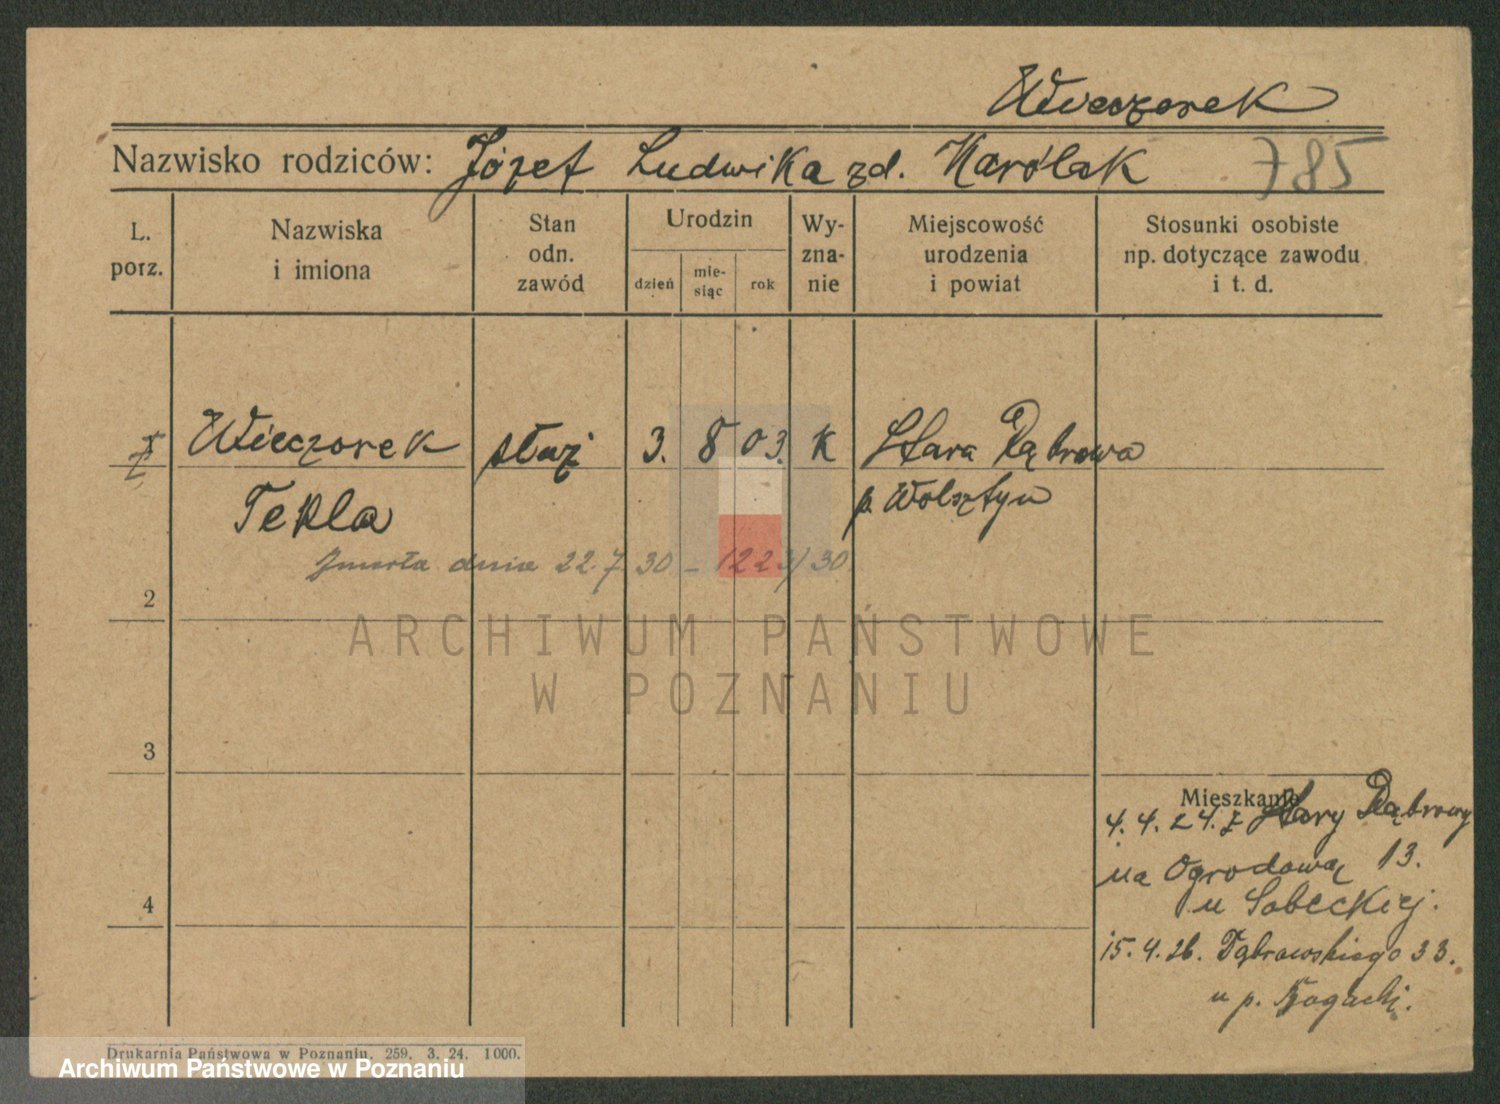 Wieczorek
Nazwisko rodziców: Józef Ludwika zd. Karólak 785
L. porz.
Nazwiska i imiona
Stan odn. zawód
Urodzin
dzień
mie-siąc
rok
Wy-zna-nie
Miejscowość urodzenia i powiat
Stosunki osobiste np. dotyczące zawodu i t. d.
Wieczorek służ 3. 8 03. K Stara Dąbrowa
Tekla p. Wolsztyn
Zmarła dnia 22.7 30 – 1223/30
2
ARCHIWUM PAŃSTWOWE
W POZNANIU
3
Mieszkanie
4. 4. 24. z Stary Dąbrowy
na Ogrodową 13.
4
u Sobeckiej.
15. 4. 26. Dąbrowskiego 33.
u p.
Drukarnia Państwowa w Poznaniu. 259. 3. 24. 1000.
Archiwum Państwowe w Poznaniu